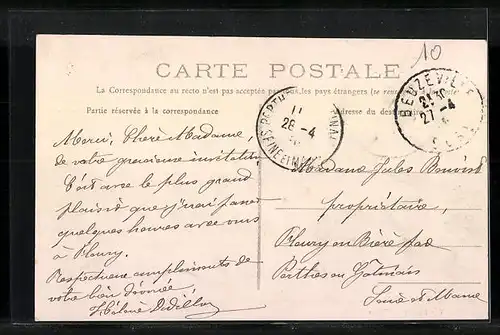 10
CARTE POSTALE
La Correspondance au recto n'est pas acceptée par tous les pays étrangers (se
Partie réservée à la correspondance
Adresse du
BEUZEVILLE
21 30
27-4
PERTHES
11
28-4
SEINE ET
Merci, Chère Madame,
de votre gracieuse invitation
C'est avec le plus grand
plaisir que j'irai passer
quelques heures avec vous
à Fleury.
Respectueux compliments de
votre bien dévouée,
Hélène
Madame Jules
propriétaire,
Fleury en Bière par
Perthes en Gâtinais
Seine et Marne